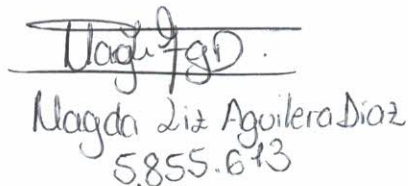 Magda Liz Aguilera Diaz
5.855.613